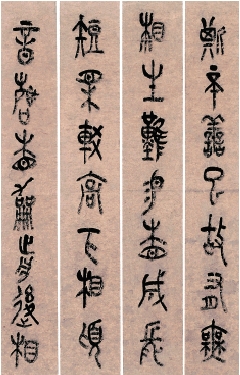 斯不善已故有無
相生難易相成長
短相較高下相頃
音聲相龢前後相